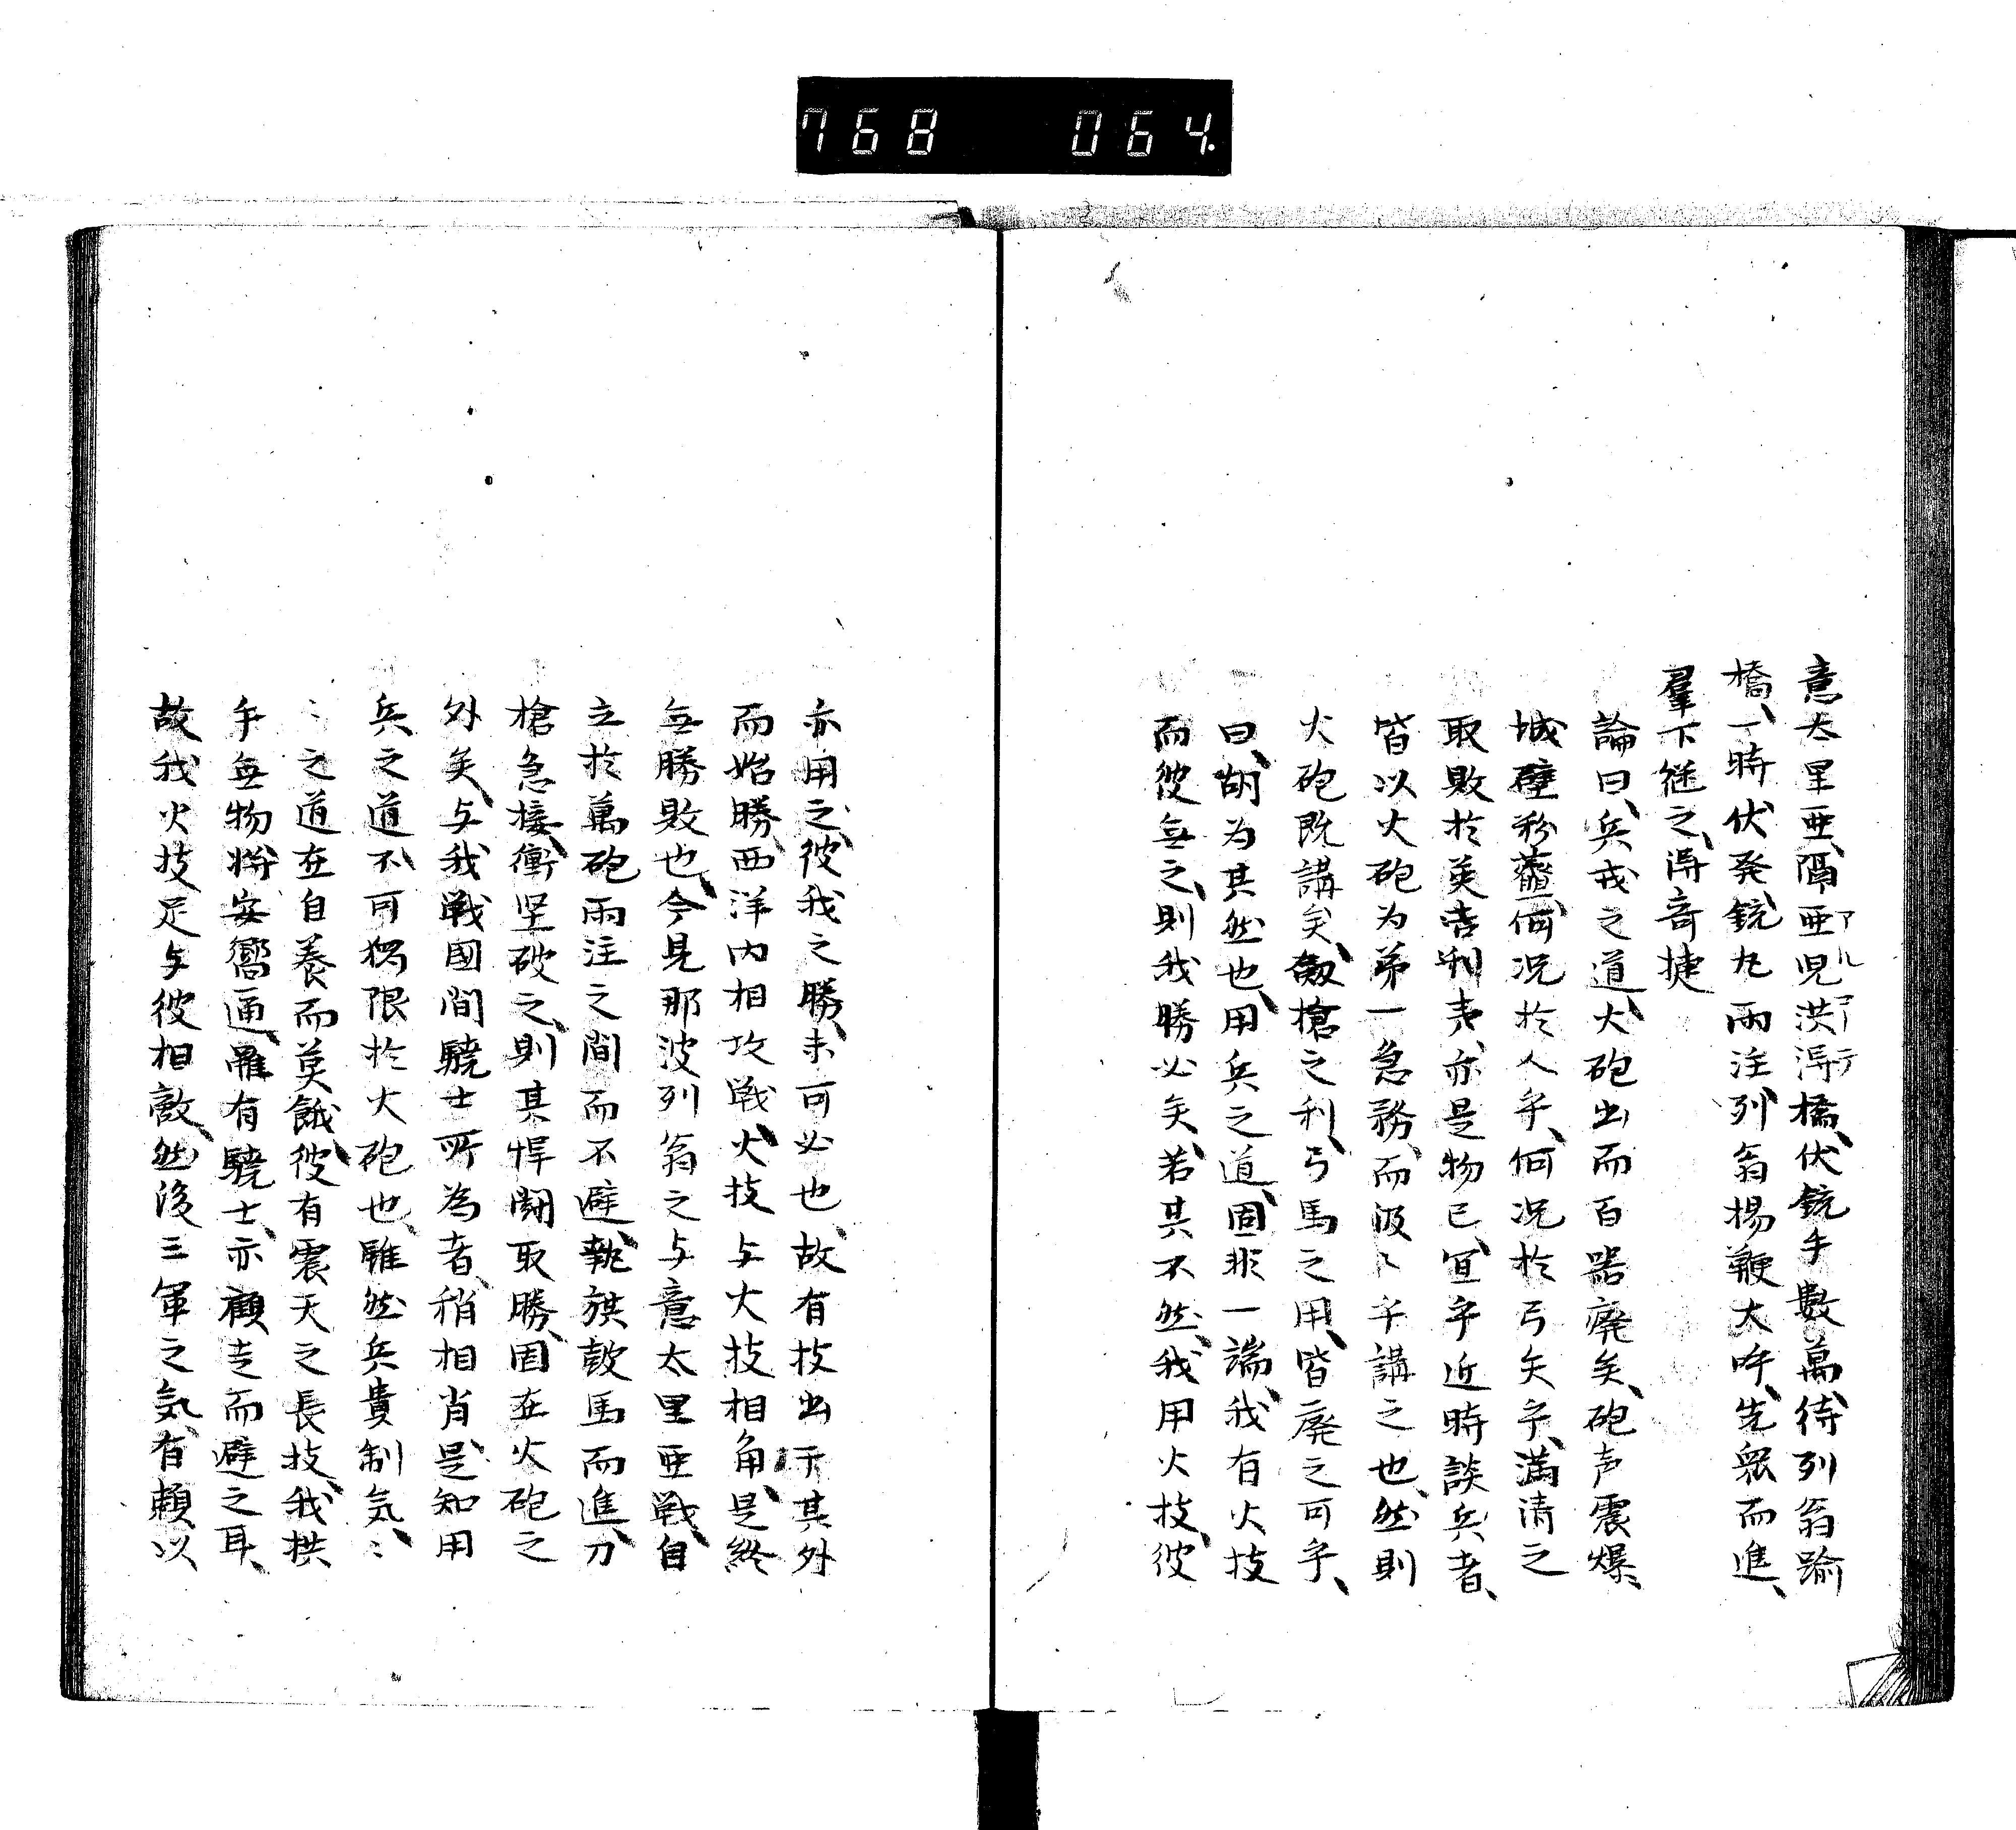 768 064.
意太里亜、隔亜児洪淂橋、伏銃手數萬、待列翁踰
アルコーテ
橋、一時伏発、銃丸雨注、列翁揚鞭大呼、先衆而進、
羣下継之、淂奇捷
論曰、兵戎之道、大砲出而百器廃矣、砲声震爆、
城壁粉虀、何况於人乎、何况於弓矢乎、満清之
取敗於英吉利夷、亦是物已、宜乎近時談兵者、
皆以火砲为第一急務、而汲〻乎講之也、然則
火砲既講矣、劔槍之利、弓馬之用、皆廃之可乎、
曰、胡为其然也、用兵之道、固非一端、我有火技
而彼無之、則我勝必矣、若其不然、我用火技、彼
亦用之、彼我之勝、未可必也、故有技出于其外
而始勝、西洋内相攻戦、火技与火技相角、是終
無勝敗也、今見那波列翁之与意太里亜戦、自
立於萬砲雨注之間而不避、執旗鼓馬而進、刀
槍急接、衝坚破之、則其悍闘取勝、固在火砲之
外矣、与我戦國間驍士所為者、稍相肖、是知用
兵之道、不可獨限於火砲也、雖然兵貴制気、〻
〻之道在自養而莫餓、彼有震天之長技、我拱
手無物、将安嚮迊、雖有驍士、亦顧走而避之耳、
故我火技足与彼相敵、然後三軍之気、有頼以